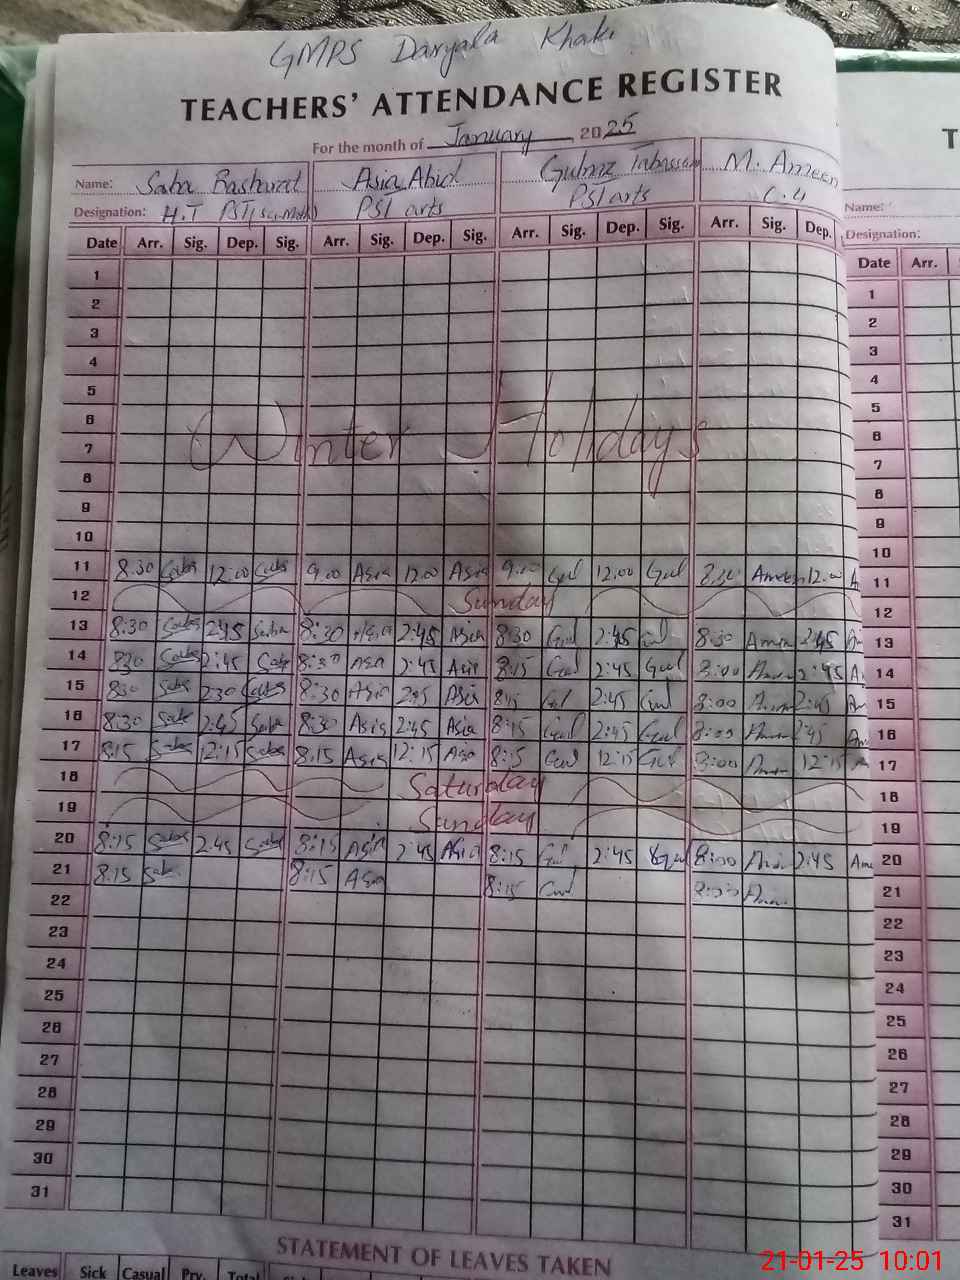 GMPS Daryala Khaki
TEACHERS' ATTENDANCE REGISTER
For the month of January 2025
Name: Saba Basharat Asia Abid Gulnaz Tabassam M. Ameen
Designation: H.T PST(Sc.Math) PST arts PST arts C.4
Date Arr. Sig. Dep. Sig. Arr. Sig. Dep. Sig. Arr. Sig. Dep. Sig. Arr. Sig. Dep.
1
2
3
4
5
6
7 Winter Holidays
8
9
10
11 8:30 Saba 12:00 Saba 9.00 Asia 12.00 Asia 9.00 Gul 12.00 Gul 8:30 Ameen 12.00
12 Sunday
13 8:30 Saba 2:45 Saba 8:30 Asia 2:45 Asia 8:30 Gul 2:45 Gul 8:30 Amin 2:45
14 8:30 Saba 2:45 Saba 8:30 Asia 2:45 Asia 8:15 Gul 2:45 Gul 8:00 2:45
15 830 Saba 2:30 Saba 8:30 Asia 2:45 Asia 8:15 Gul 2:45 Gul 8:00 2:45
16 8:30 Saba 2:45 Saba 8:30 Asia 2:45 Asia 8:15 Gul 2:45 Gul 8:00 2:45
17 8:15 Saba 12:15 Saba 8:15 Asia 12:15 Asia 8:15 Gul 12:15 Gul 8:00 12:15
18 Saturday
19 Sunday
20 8:15 Saba 2:45 Saba 8:15 Asia 2:45 Asia 8:15 Gul 2:45 Gul 8:00 2:45
21 8:15 Sab 8:15 Asia 8:15 Gul 8:00
22
23
24
25
26
27
28
29
30
31
STATEMENT OF LEAVES TAKEN
Leaves Sick Casual Prv. Total
T
Name:
Designation:
Date Arr.
1
2
3
4
5
6
7
8
9
10
11
12
13
14
15
16
17
18
19
20
21
22
23
24
25
26
27
28
29
30
31
21-01-25 10:01